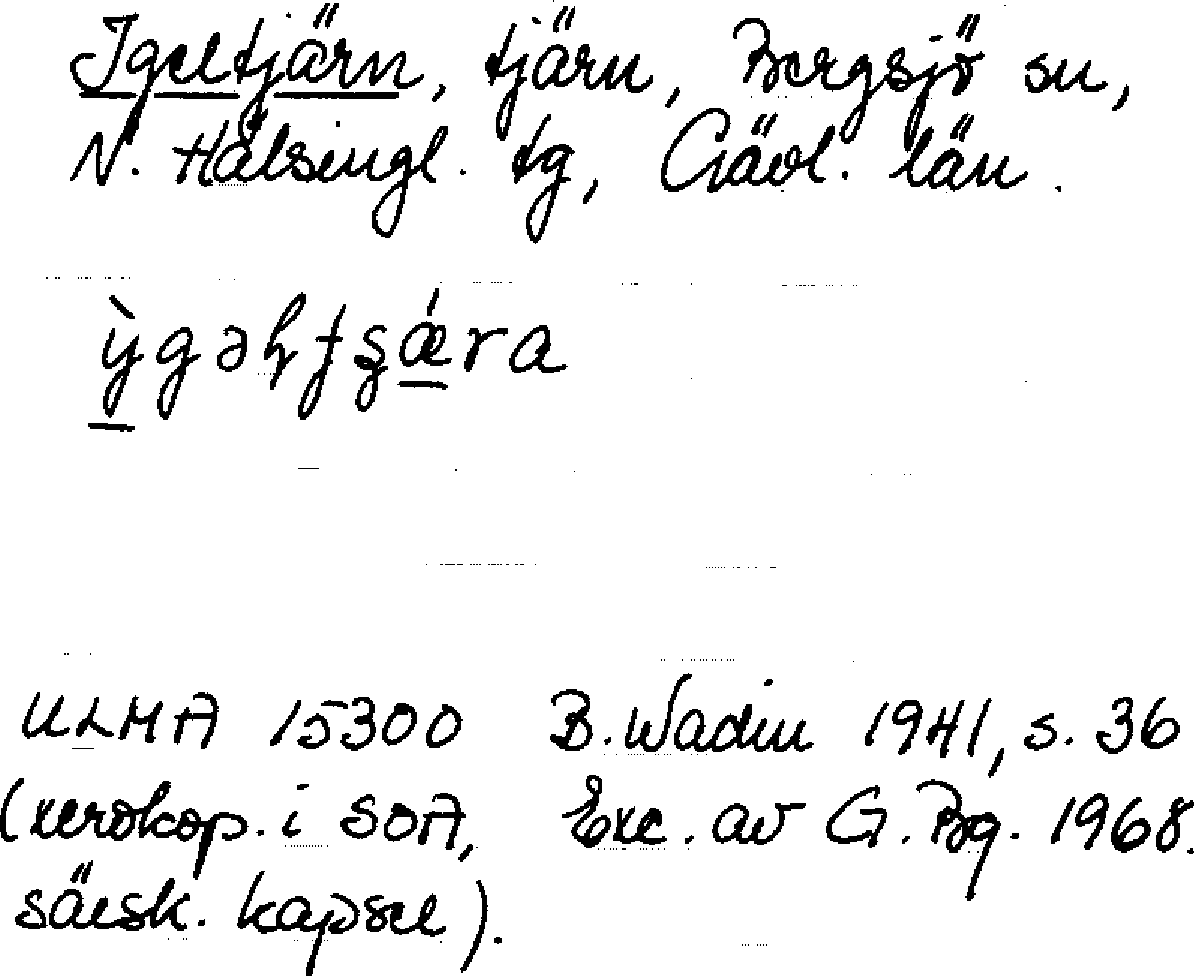 Igeltjärn, tjärn, Bergsjö sn,
N. Hälsingl. tg, Gävl. län.
ỳgəⱨƫʂǽra
ULMA 15300 B. Wadin 1941, s. 36
(xerokop. i SOA, Exc. av G. Bg. 1968.
särsk. kapsel).